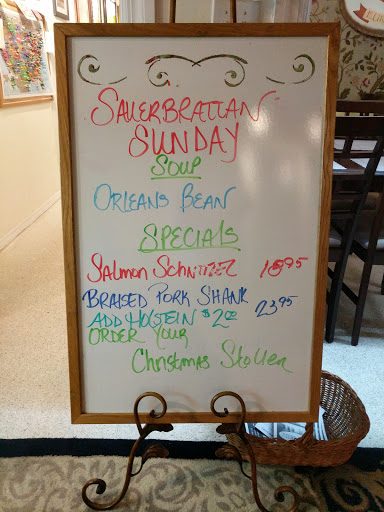 SAUERBRATTAN
SUNDAY
SOUP
ORLEANS BEAN
SPECIALS
SALMON SCHNITZEL 18.95
BRAISED PORK SHANK 23.95
ADD HOLSTEIN $2.00
ORDER YOUR
CHRISTMAS STOLLEN